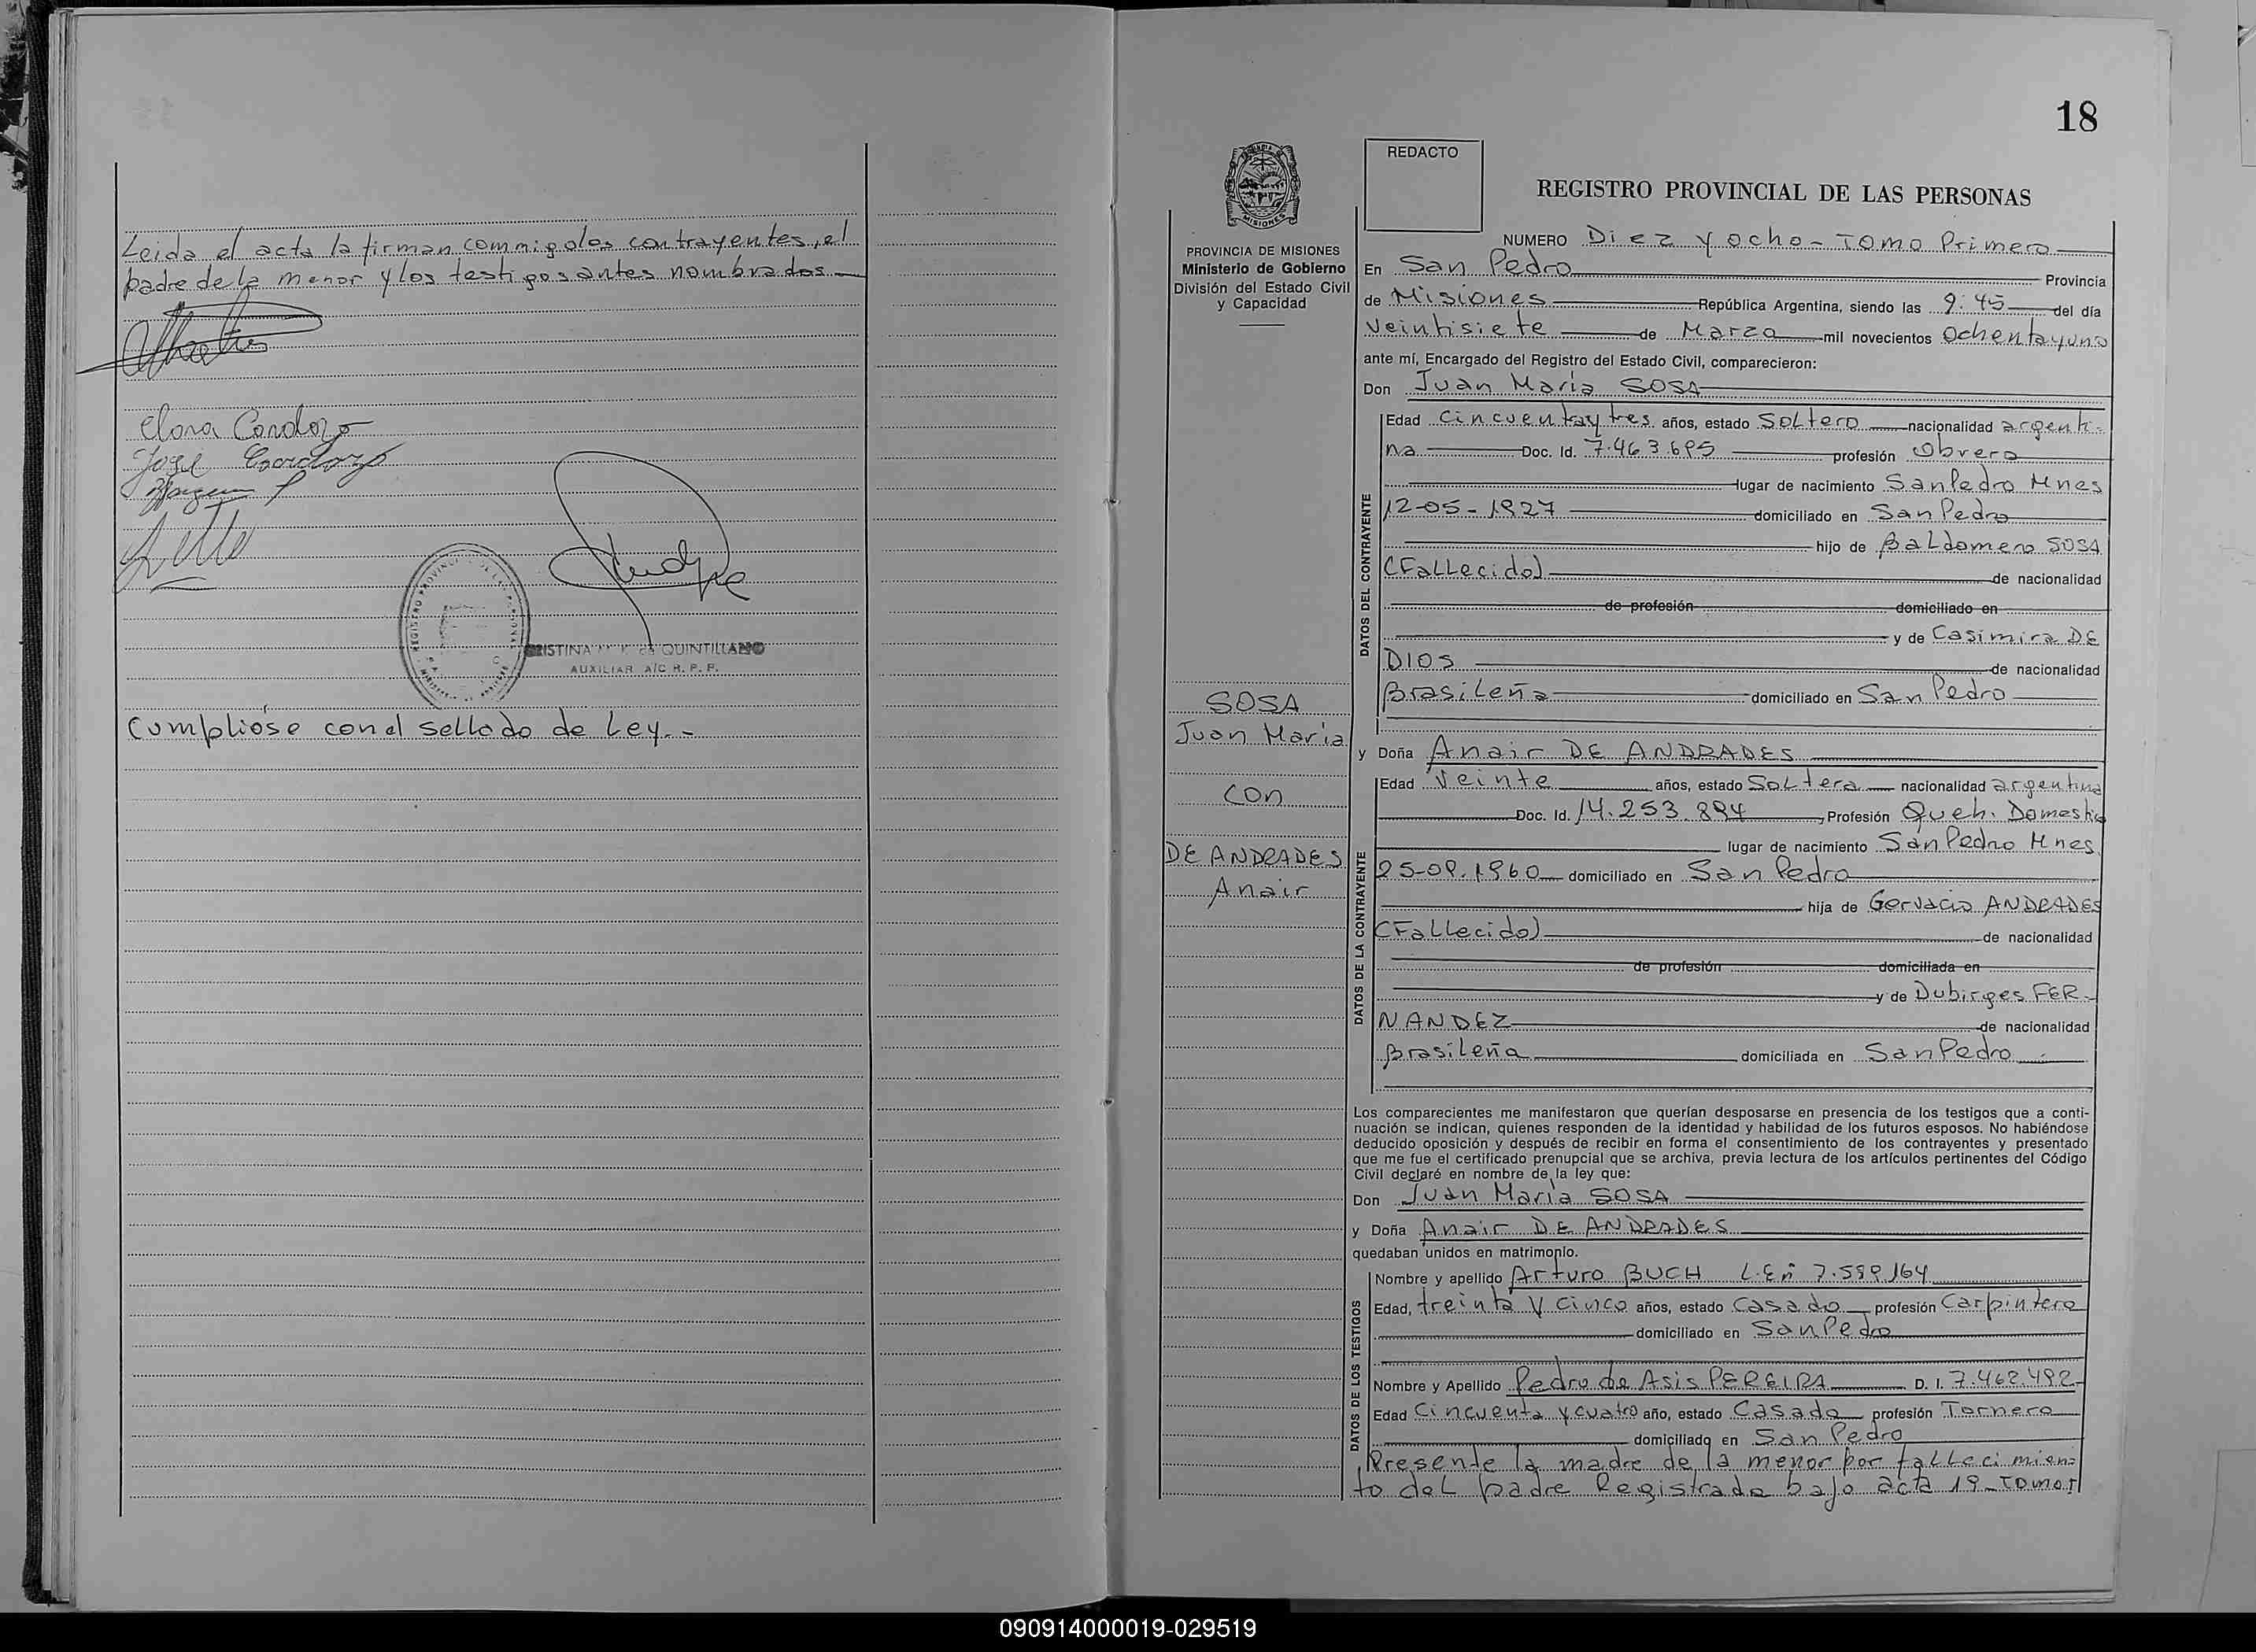 Leida el acta la firman conmigo los contrayentes, el
padre de la menor y los testigos antes nombrados.
Clara Cardozo
José Cardozo
QUINTILLANO
AUXILIAR A/C R. P. P.
Cumplióse con el sellado de Ley.-
18
REDACTO
MISIONES
REGISTRO PROVINCIAL DE LAS PERSONAS
PROVINCIA DE MISIONES
Ministerio de Gobierno
División del Estado Civil
y Capacidad
NUMERO Diez y ocho - Tomo Primero
En San Pedro Provincia
de Misiones República Argentina, siendo las 9:45 del día
Veintisiete de Marzo mil novecientos ochenta y uno
ante mí, Encargado del Registro del Estado Civil, comparecieron:
Don Juan María SOSA
DATOS DEL CONTRAYENTE
Edad cincuenta y tres años, estado Soltero nacionalidad argenti-
na Doc. Id. 7.463.695 profesión Obrero
lugar de nacimiento San Pedro Mnes
12-05-1927 domiciliado en San Pedro
hijo de Baldomero SOSA
(Fallecido) de nacionalidad
de profesión domiciliado en
y de Casimira DE
DIOS de nacionalidad
Brasileña domiciliado en San Pedro
SOSA
Juan María
con
DE ANDRADES
Anair
y Doña Anair DE ANDRADES
DATOS DE LA CONTRAYENTE
Edad Veinte años, estado Soltera nacionalidad argentina
Doc. Id. 14.253.894 Profesión Queh. Domestic
lugar de nacimiento San Pedro Mnes
25-09-1960 domiciliado en San Pedro
hija de Gervacio ANDRADES
(Fallecido) de nacionalidad
de profesión domiciliada en
y de Dubirges FER-
NANDEZ de nacionalidad
Brasileña domiciliada en San Pedro
Los comparecientes me manifestaron que querían desposarse en presencia de los testigos que a conti-
nuación se indican, quienes responden de la identidad y habilidad de los futuros esposos. No habiéndose
deducido oposición y después de recibir en forma el consentimiento de los contrayentes y presentado
que me fue el certificado prenupcial que se archiva, previa lectura de los artículos pertinentes del Código
Civil declaré en nombre de la ley que:
Don Juan María SOSA
y Doña Anair DE ANDRADES
quedaban unidos en matrimonio.
DATOS DE LOS TESTIGOS
Nombre y apellido Arturo BUCH L.E nº 7.599.164
Edad, treinta y cinco años, estado Casado profesión Carpintero
domiciliado en San Pedro
Nombre y Apellido Pedro de Asis PEREIRA D. I. 7.462.492
Edad Cincuenta y cuatro año, estado Casado profesión Tornero
domiciliado en San Pedro
Presente la madre de la menor por fallecimien-
to del padre Registrada bajo acta 19-Tomo I
090914000019-029519